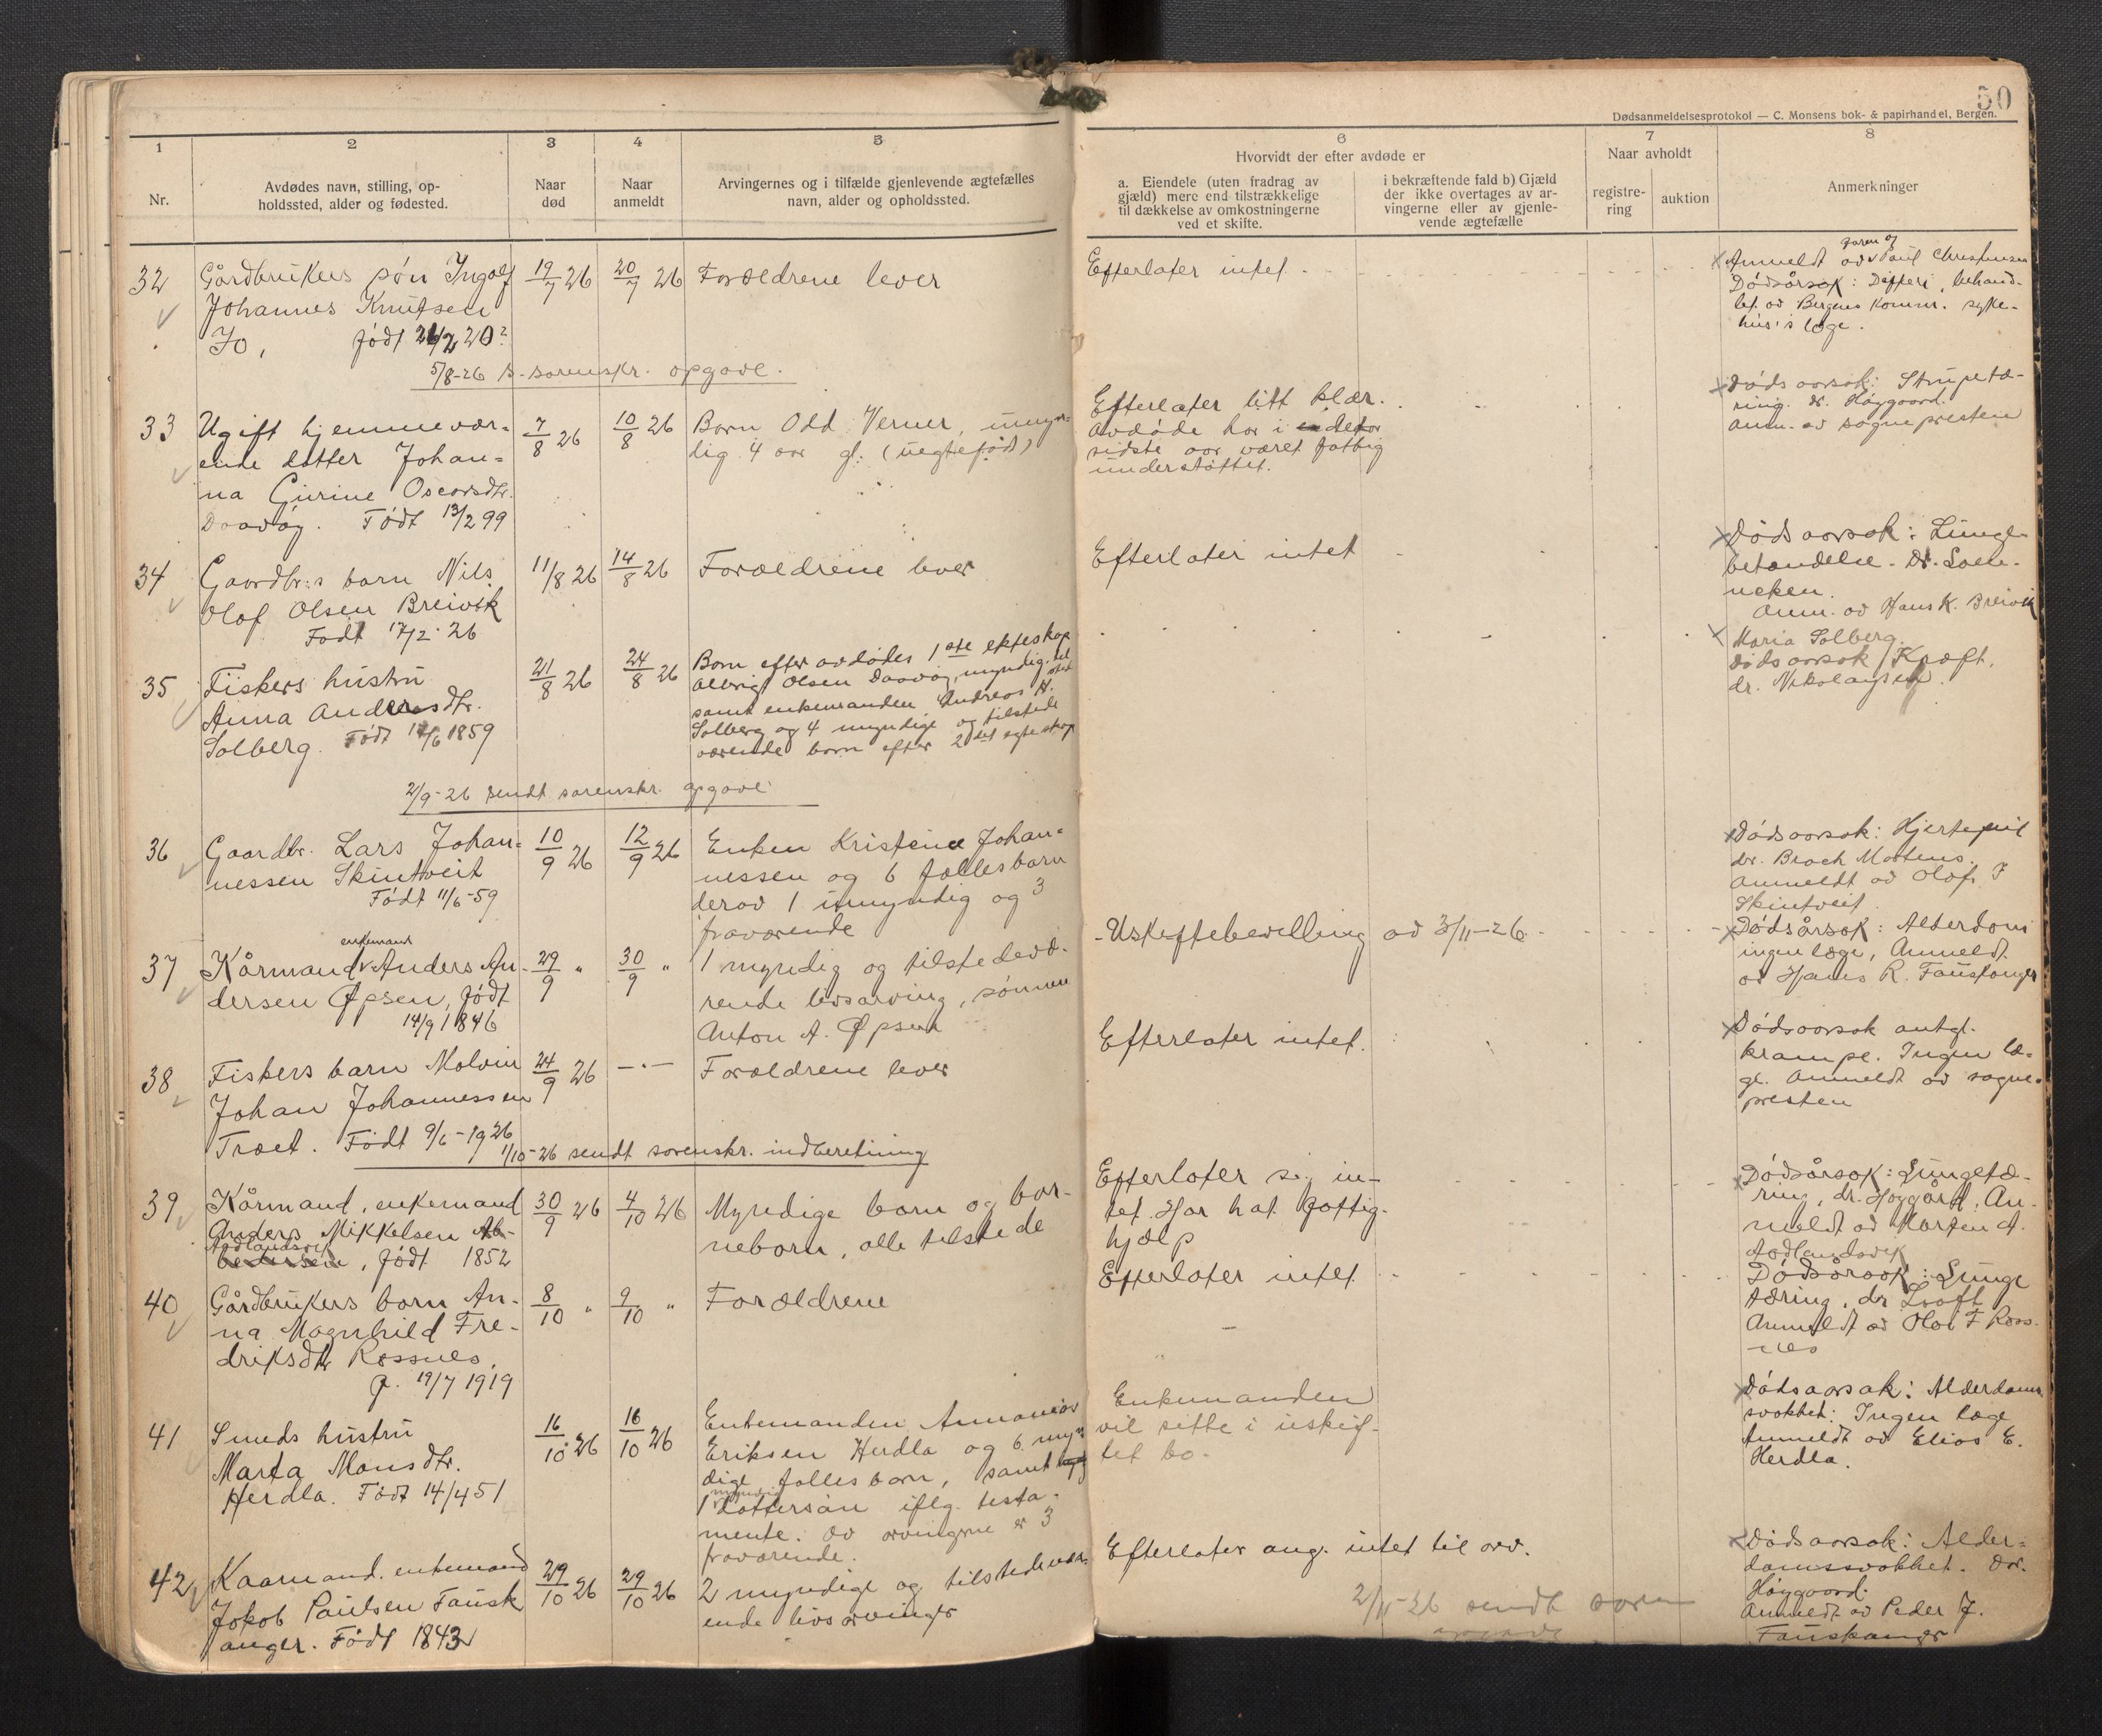 50
Dødsanmeldelsesprotokol — C. Monsens bok- & papirhandel, Bergen.
1
Nr.
2
Avdødes navn, stilling, op-
holdssted, alder og fødested.
3
Naar
død
4
Naar
anmeldt
5
Arvingernes og i tilfælde gjenlevende ægtefælles
navn, alder og opholdssted.
6
Hvorvidt der efter avdøde er
a. Eiendele (uten fradrag av
gjæld) mere end tilstrækkelige
til dækkelse av omkostningerne
ved et skifte.
i bekræftende fald b) Gjæld
der ikke overtages av ar-
vingerne eller av gjenle-
vende ægtefælle
7
Naar avholdt
registre-
ring
auktion
8
Anmerkninger
32
Gårdbrukers søn Ingolf
Johannes Knutsen
Jo, født 26/2 20?
19/7 26
20/7 26
Forældrene lever
Efterlater intet
Anmeldt av Paul Christensen
Dødsårsak: Difteri, behand-
let av Bergens komm. syke-
hus's læge.
5/8-26 s. sorenskr. opgave.
33
Ugift hjemmevær-
ende datter Johan-
na Gurine Oscarsdtr.
Daavøy. Født 13/2 99
7/8 26
10/8 26
Barn Odd Verner, umyn-
dig 4 aar gl. (uegtefødt)
Efterlater litt klær.
Avdøde har i det
sidste aar været fattig
understøttet.
Dødsaarsak: Strupetæ-
ring. dr. Høygaard.
Anm. av sognepresten
34
Gaardbr:s barn Nils
Olaf Olsen Breivik
Født 17/2 26
11/8 26
14/8 26
Forældrene lever
Efterlater intet
Dødsaarsak: Lunge-
betændelse. Dr. Loen-
neken.
Anm. av Hans K. Breivik
35
Fiskers hustru
Anna Andersdtr.
Solberg. Født 17/6 1859
21/8 26
24/8 26
Barn efter avdødes 1ste ekteskap
Albrigt Olsen Daavøy, myndig, tilsted
samt enkemanden Andreas H.
Solberg og 4 myndige og tilstede
værende barn efter 2det egteskap
Maria Solberg.
Dødsaarsak Kræft.
dr. Nikolaysen.
2/9-26 sendt sorenskr. opgave
36
Gaardbr. Lars Johan-
nessen Skintveit
Født 11/6-59
10/9 26
12/9 26
Enken Kristine Johan-
nessen og 6 fællesbarn
derav 1 umyndig og 3
fraværende
Uskiftebevilling av 3/11-26
Dødsaarsak: Hjertefeil
dr. Broch Martens.
Anmeldt av Olaf J
Skintveit.
37
enkemand
Kårmand Anders An-
dersen Øpsen, født
14/9 1846
29/9 "
30/9 "
1 myndig og tilstedevæ-
rende livsarving, sønnen
Anton A. Øpsen
Dødsårsak: Alderdom
ingen læge, Anmeldt
av Hans R. Fauskanger
38
Fiskers barn Malvin
Johan Johannessen
Træet. Født 9/6-1926
24/9 26
— " —
Forældrene lever
Efterlater intet.
Dødsaarsak antgl.
krampe. Ingen læ-
ge. Anmeldt av sogne-
presten
1/10-26 sendt sorenskr. indberetning
39
Kårmand, enkemand
Anders Mikkelsen
Aadlandsvik, født 1852
30/9 26
4/10 26
Myndige barn og bar-
nebarn, alle tilstede
Efterlater sig in-
tet. Har hat fattig-
hjælp
Dødsårsak: Lungetæ-
ring, dr. Høygård, An-
meldt av Marten A.
Aadlandsvik
40
Gårdbrukers barn An-
na Magnhild Fre-
driksdtr Rossnes,
f. 19/7 1919
8/10 "
9/10 "
Forældrene
Efterlater intet
Dødsårsak: Lunge
tæring, dr. Looft
Anmeldt av Olai F Ross-
nes
41
Smeds hustru
Marta Monsdtr.
Herdla. Født 14/4 51
16/10 26
16/10 26
Enkemanden Annanias
Eriksen Herdla og 6 myn-
dige fællesbarn, samt
1 myndig dattersøn iflg. testa-
mente. Av arvingerne er 3
fraværende.
Enkemanden
vil sitte i uskif-
tet bo.
Dødsaarsak: Alderdoms
svakhet: Ingen læge
Anmeldt av Elias E.
Herdla.
42
Kaarmand. enkemand
Jakob Paulsen Fausk
anger. Født 1843
29/10 26
29/10 26
2 myndige og tilstedevær-
ende livsarvinger
Efterlater ang. intet til arv.
2/11-26 sendt soren
opgave
Dødsaarsak: Alder-
domssvakhet. Dr.
Høygaard.
Anmeldt av Peder J.
Fauskanger